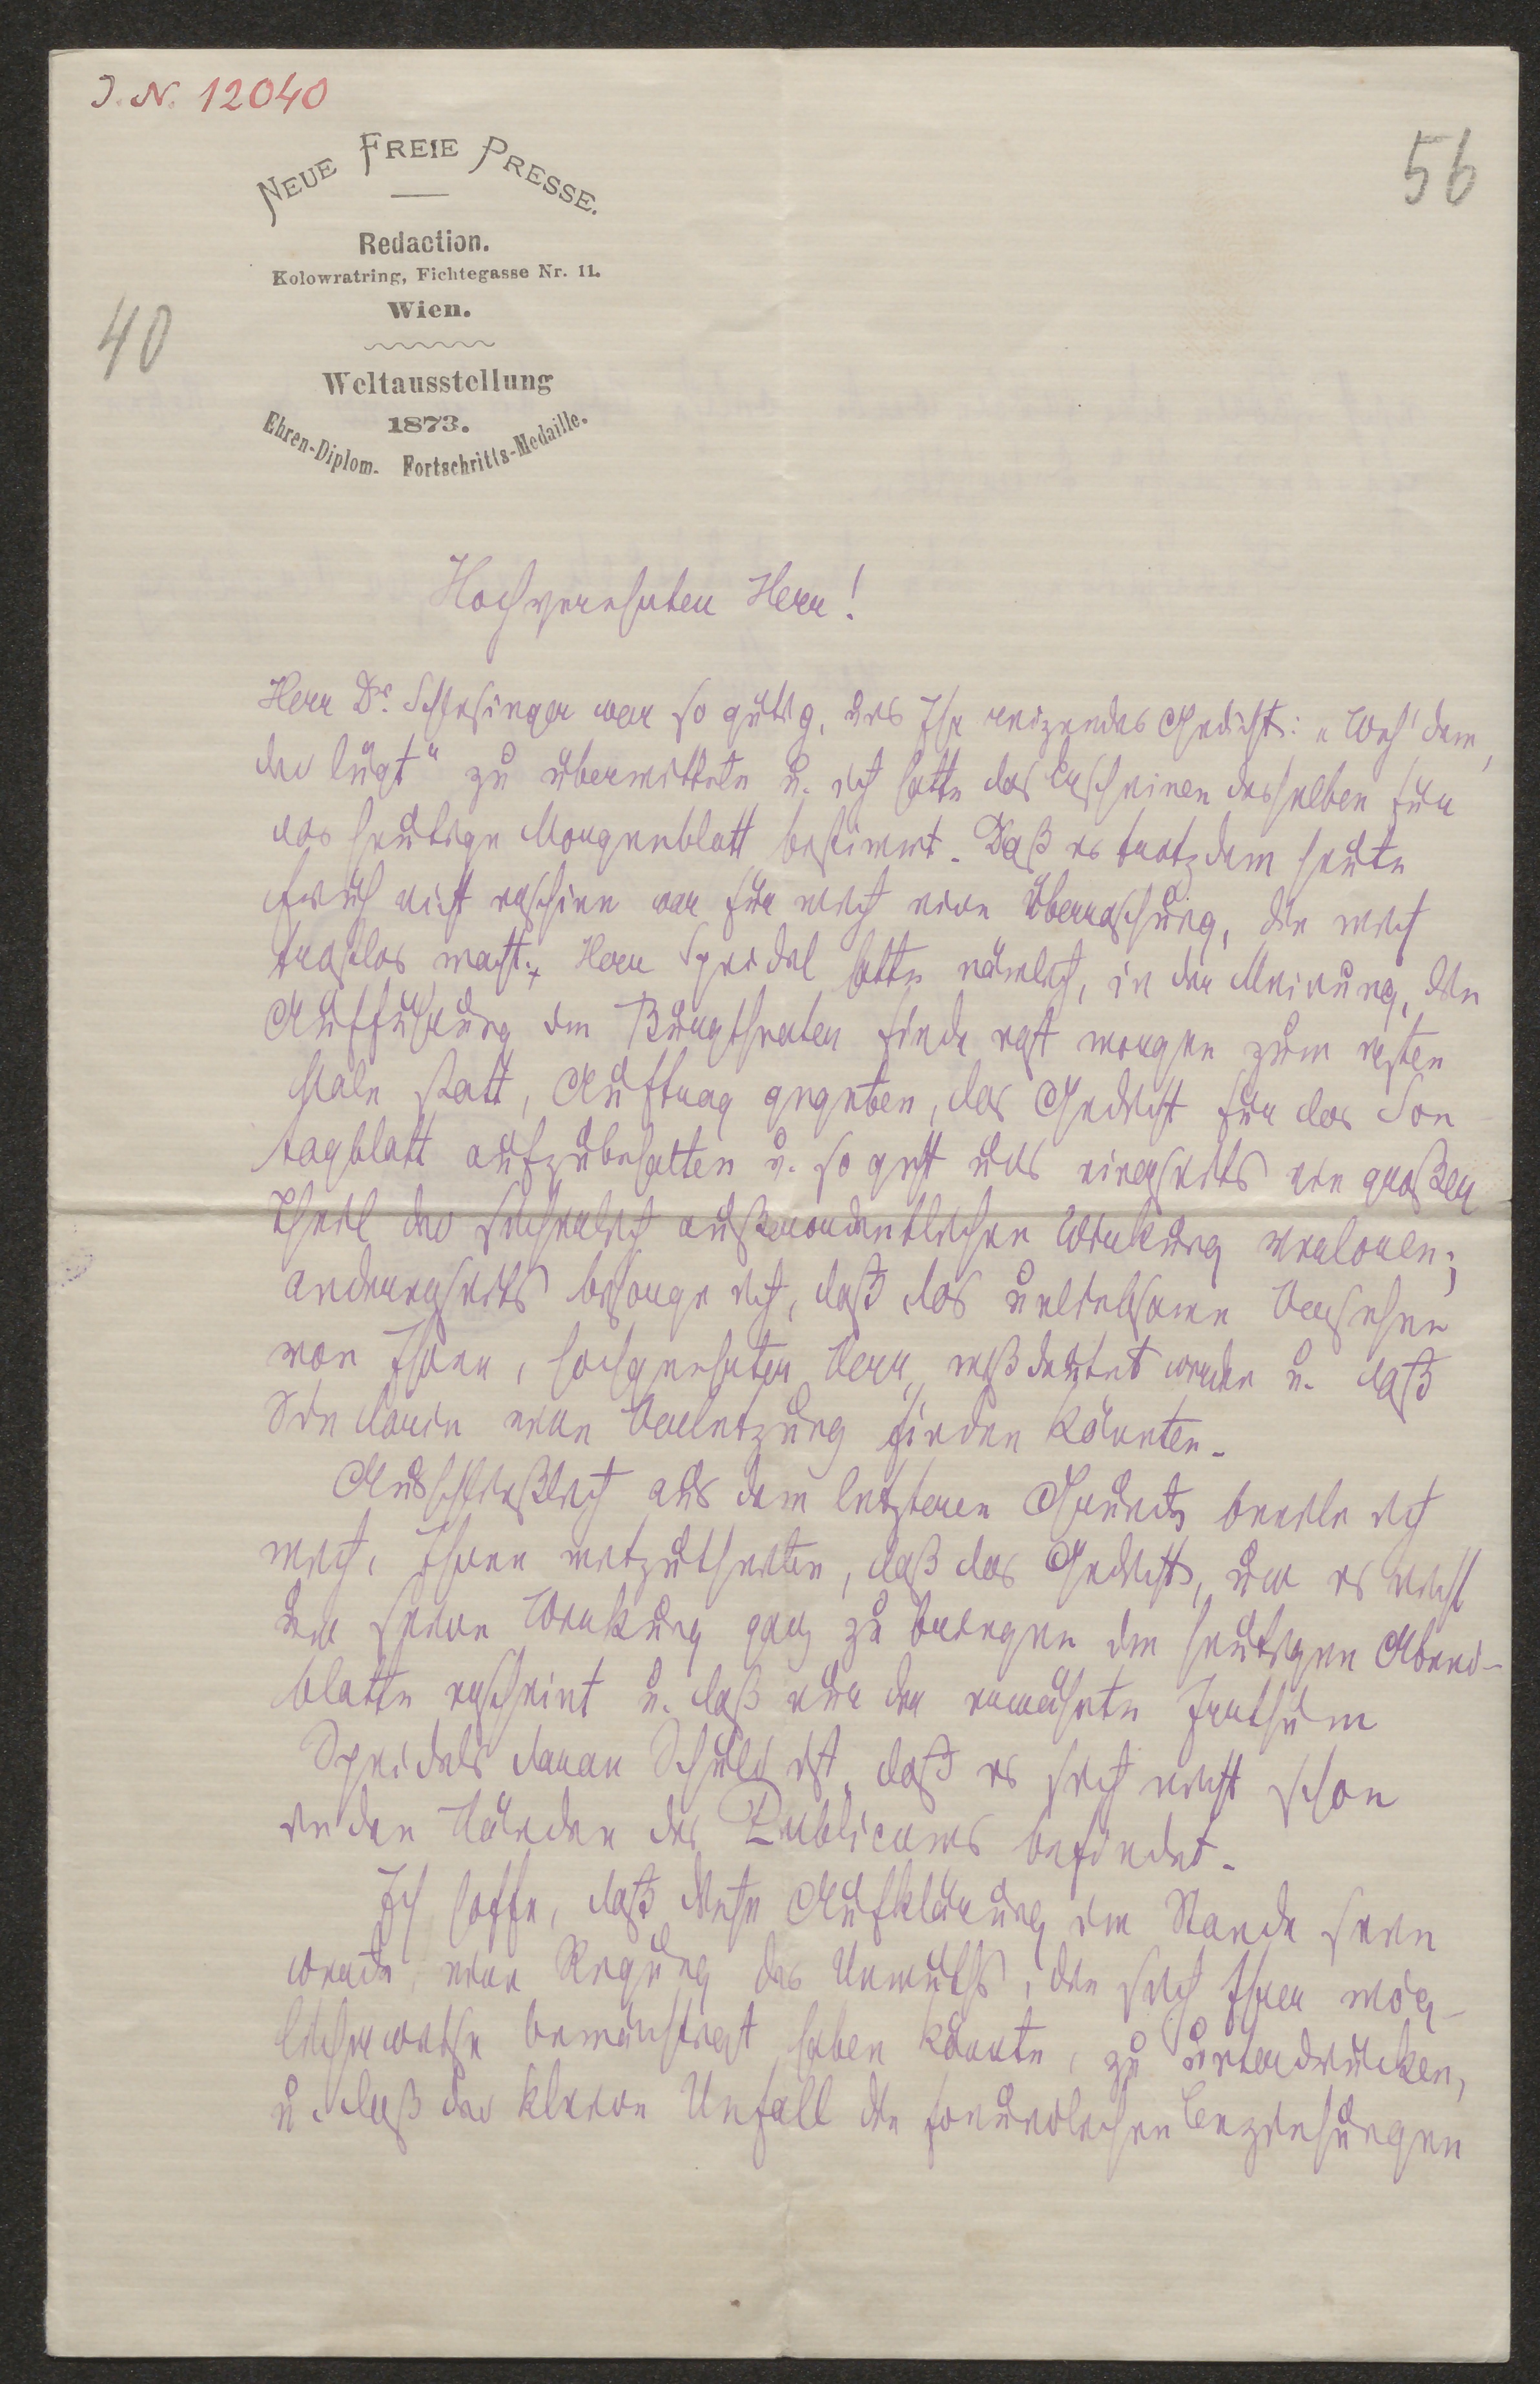 I. N. 12040
56
NEUE FREIE PRESSE.
Redaction.
Kolowratring, Fichtegasse Nr. 11.
Wien.
40
Weltausstellung
1873.
Ehren-Diplom. Fortschritts-Medaille.
Hochverehrter Herr!
Herr Dr. Schlesinger war so gütig, uns Ihr reizendes Gedicht: „Weh' dem,
der lügt“ zu übermitteln u. ich hatte das Erscheinen desselben für
das heutige Morgenblatt bestimmt. Daß es trotzdem heute
früh nicht erschien war für mich eine Überraschung, die mich
trostlos macht. Herr Speidel hatte nämlich, in der Meinung, die
Aufführung im Burgtheater finde erst morgen zum ersten
Male statt, Auftrag gegeben, das Gedicht für das Son
tagblatt aufzubehalten u. so geht uns einerseits ein großer
Theil der sicherlich außerordentlichen Wirkung verloren;
andererseits besorge ich, daß das unliebsame Versehen
von Ihnen, hochgeehrter Herr, mißdeutet werden u. daß
Sie darin eine Verletzung finden könnten.
Ausschließlich aus dem letzteren Grunde beeile ich
mich, Ihnen mitzutheilen, daß das Gedicht, um es nicht
um seine Wirkung ganz zu bringen im heutigen Abend-
blatte erscheint u. daß nur der erwähnte Irrthum
Speidels daran Schuld ist, daß es sich nicht schon
in den Händen des Publicums befindet.
Ich hoffe, daß diese Aufklärung im Stande sein
werde, eine Regung des Unmuths, die sich Ihrer mög-
licherweise bemächtigt haben könnte, zu unterdrücken,
u. daß der kleine Unfall die freundlichen Beziehungen